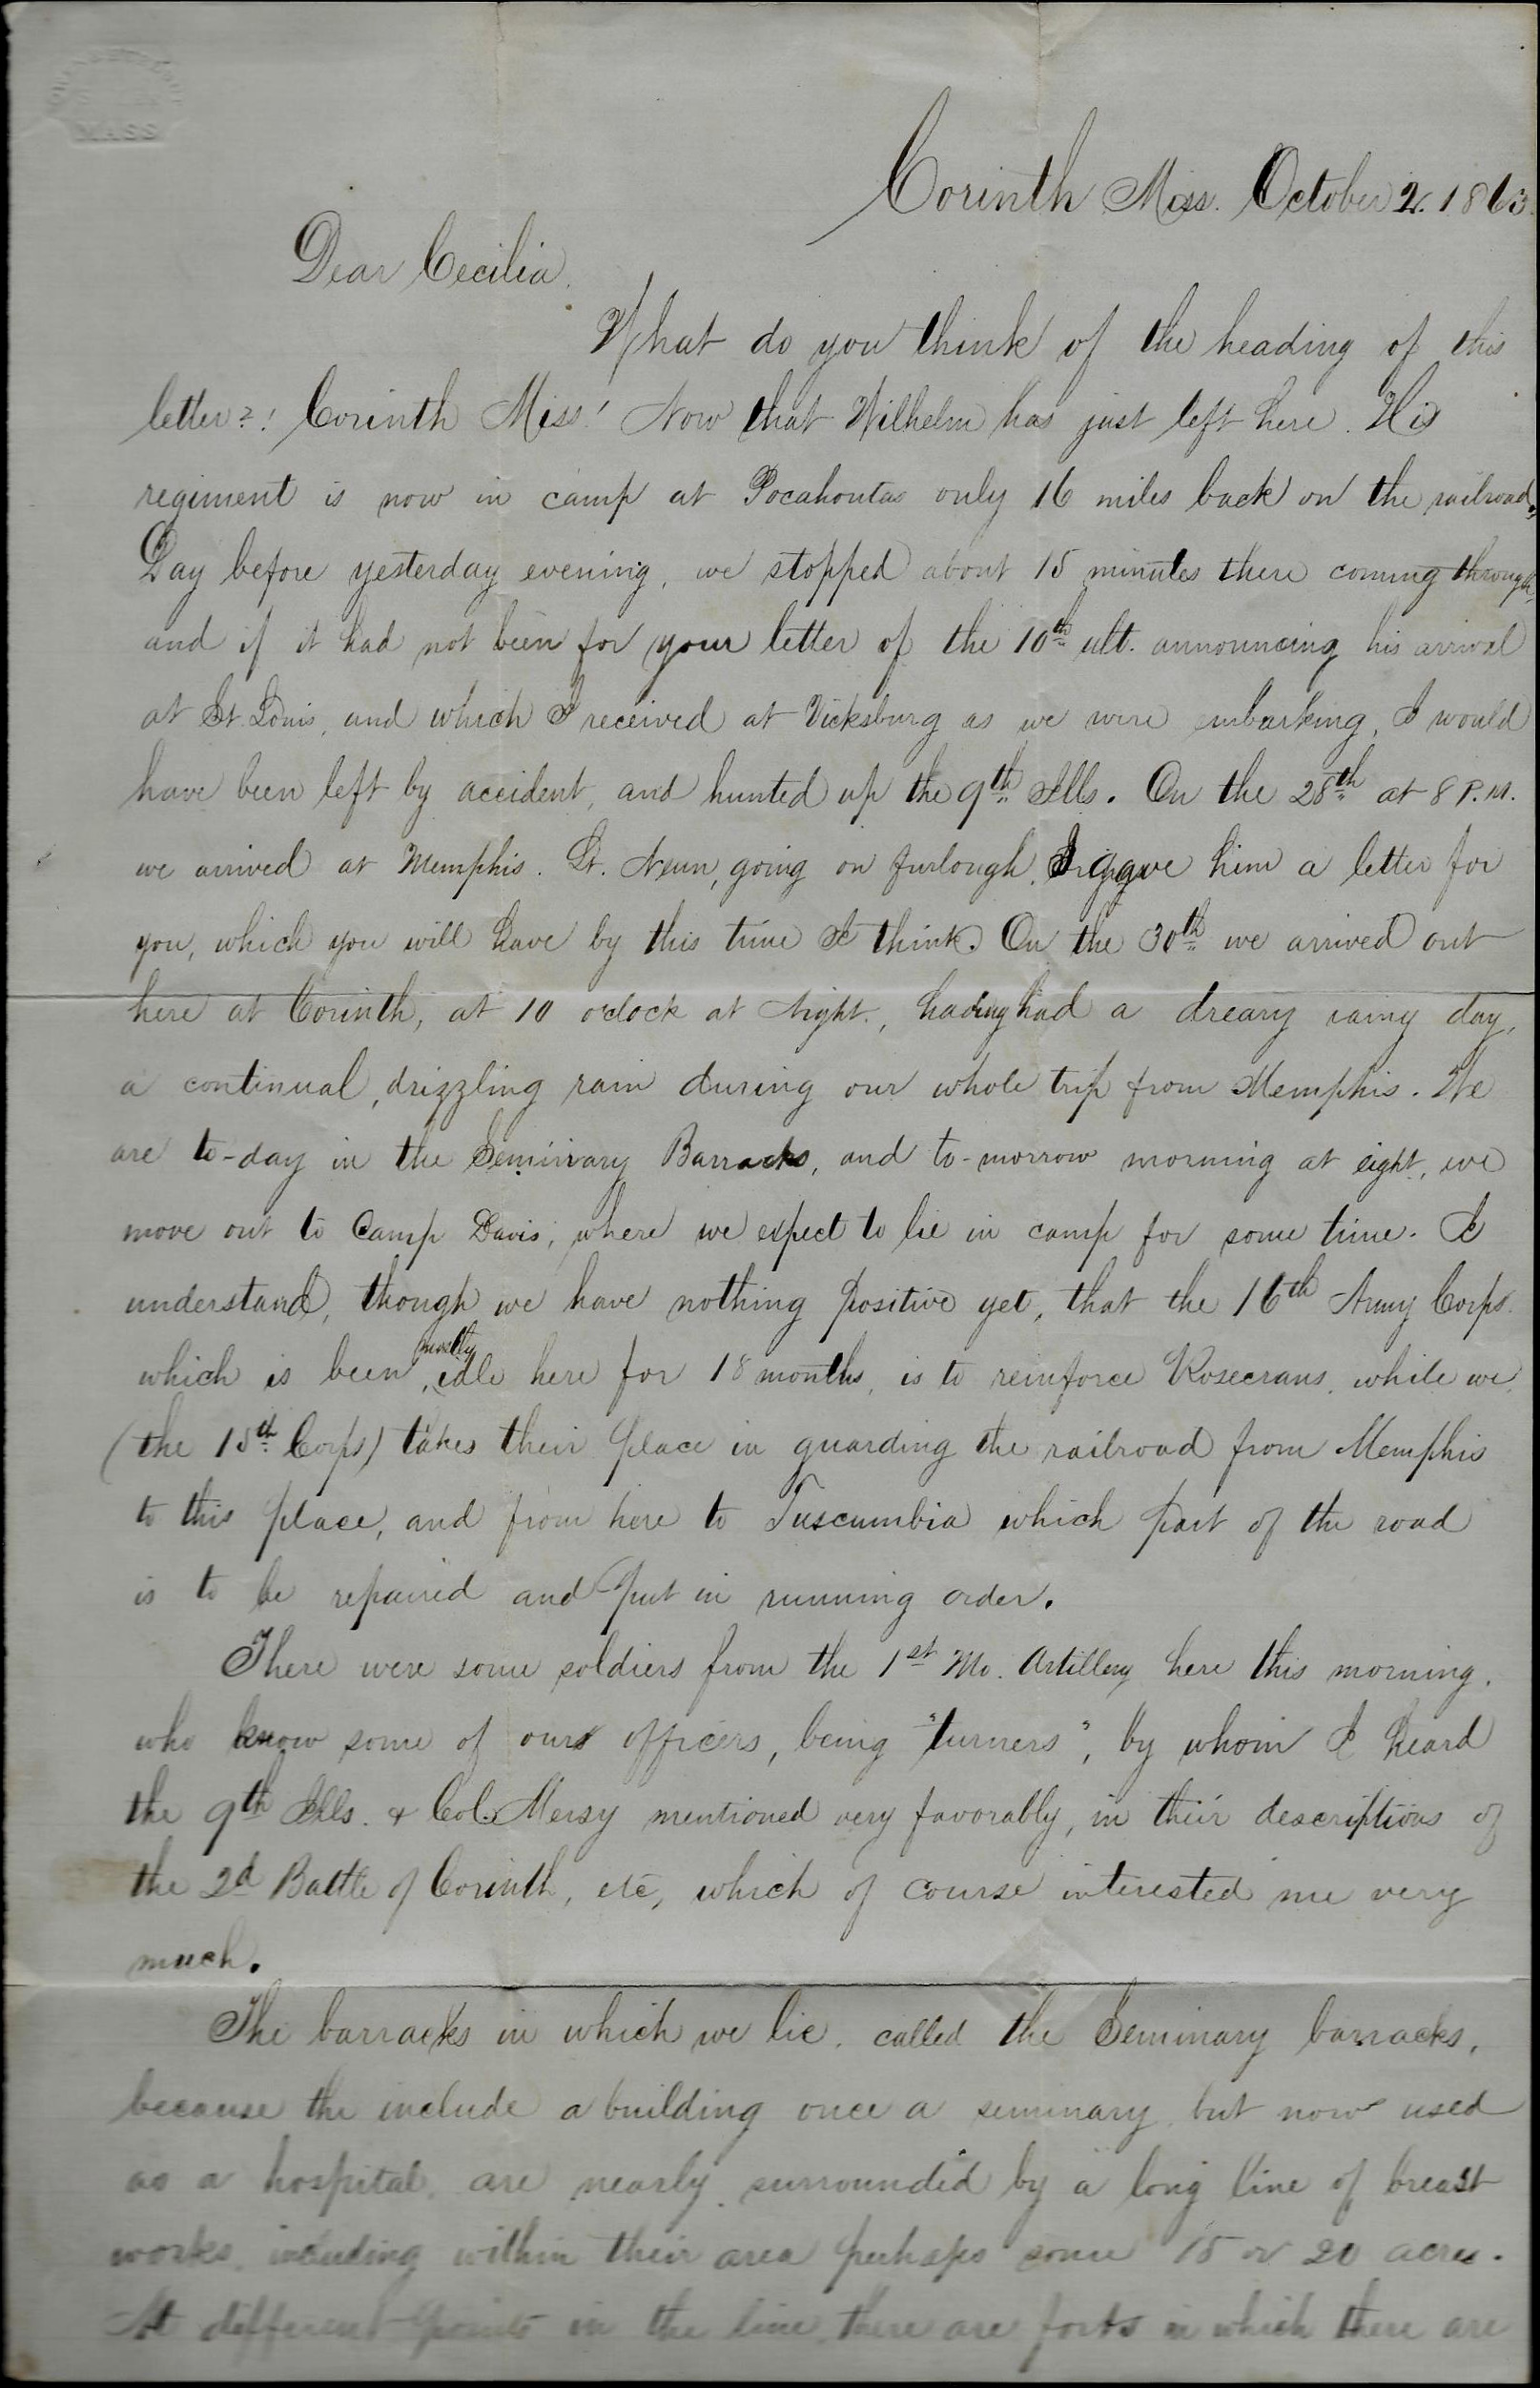 MASS
Corinth Miss. October 2. 1863.
Dear Cecilia.
What do you think of the heading of this
letter?! Corinth Miss! Now that Wilhelm has just left here. His
regiment is now in camp at Pocahontas only 16 miles back on the railroad.
Day before yesterday evening, we stopped about 15 minutes there coming through,
and if it had not been for your letter of the 10th ult. announcing his arrival
at St. Louis, and which I received at Vicksburg as we were embarking, I would
have been left by accident, and hunted up the 9th Ills. On the 28th at 8 P.M.
we arrived at Memphis. Lt. Neun, going on furlough, I gave him a letter for
you, which you will have by this time I think. On the 30th we arrived out
here at Corinth, at 10 o'clock at Night, having had a dreary rainy day,
a continual, drizzling rain during our whole trip from Memphis. We
are to-day in the Seminary Barracks, and to-morrow morning at eight, we
move out to Camp Davis, where we expect to lie in camp for some time. I
understand, though we have nothing positive yet, that the 16th Army Corps.
which is been mostly idle here for 18 months, is to reinforce Rosecrans, while we
(the 15th Corps) takes their place in guarding the railroad from Memphis
to this place, and from here to Tuscumbia which part of the road
is to be repaired and put in running order.
There were some soldiers from the 1st Mo. Artillery here this morning.
who know some of ours officers, being "turners", by whom I heard
the 9th Ills. & Col. Mersy mentioned very favorably, in their descriptions of
the 2d Battle of Corinth, etc, which of course interested me very
much.
The barracks in which we lie. called the Seminary barracks,
because the include a building once a seminary but now used
as a hospital, are nearly surrounded by a long line of breast
works, including within their area perhaps some 15 or 20 acres.
At different points in the line there are forts in which there are